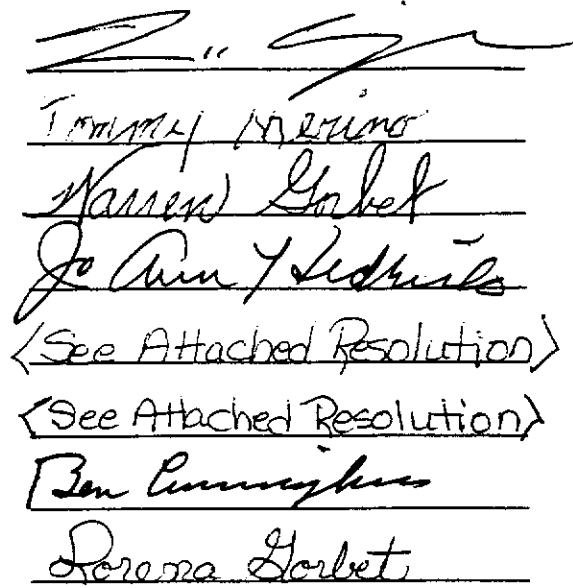 Tommy Merino
Warren Gorbet
Jo Ann Y Hedrick
<See Attached Resolution>
<See Attached Resolution>
Ben Cunningham
Lorena Gorbet